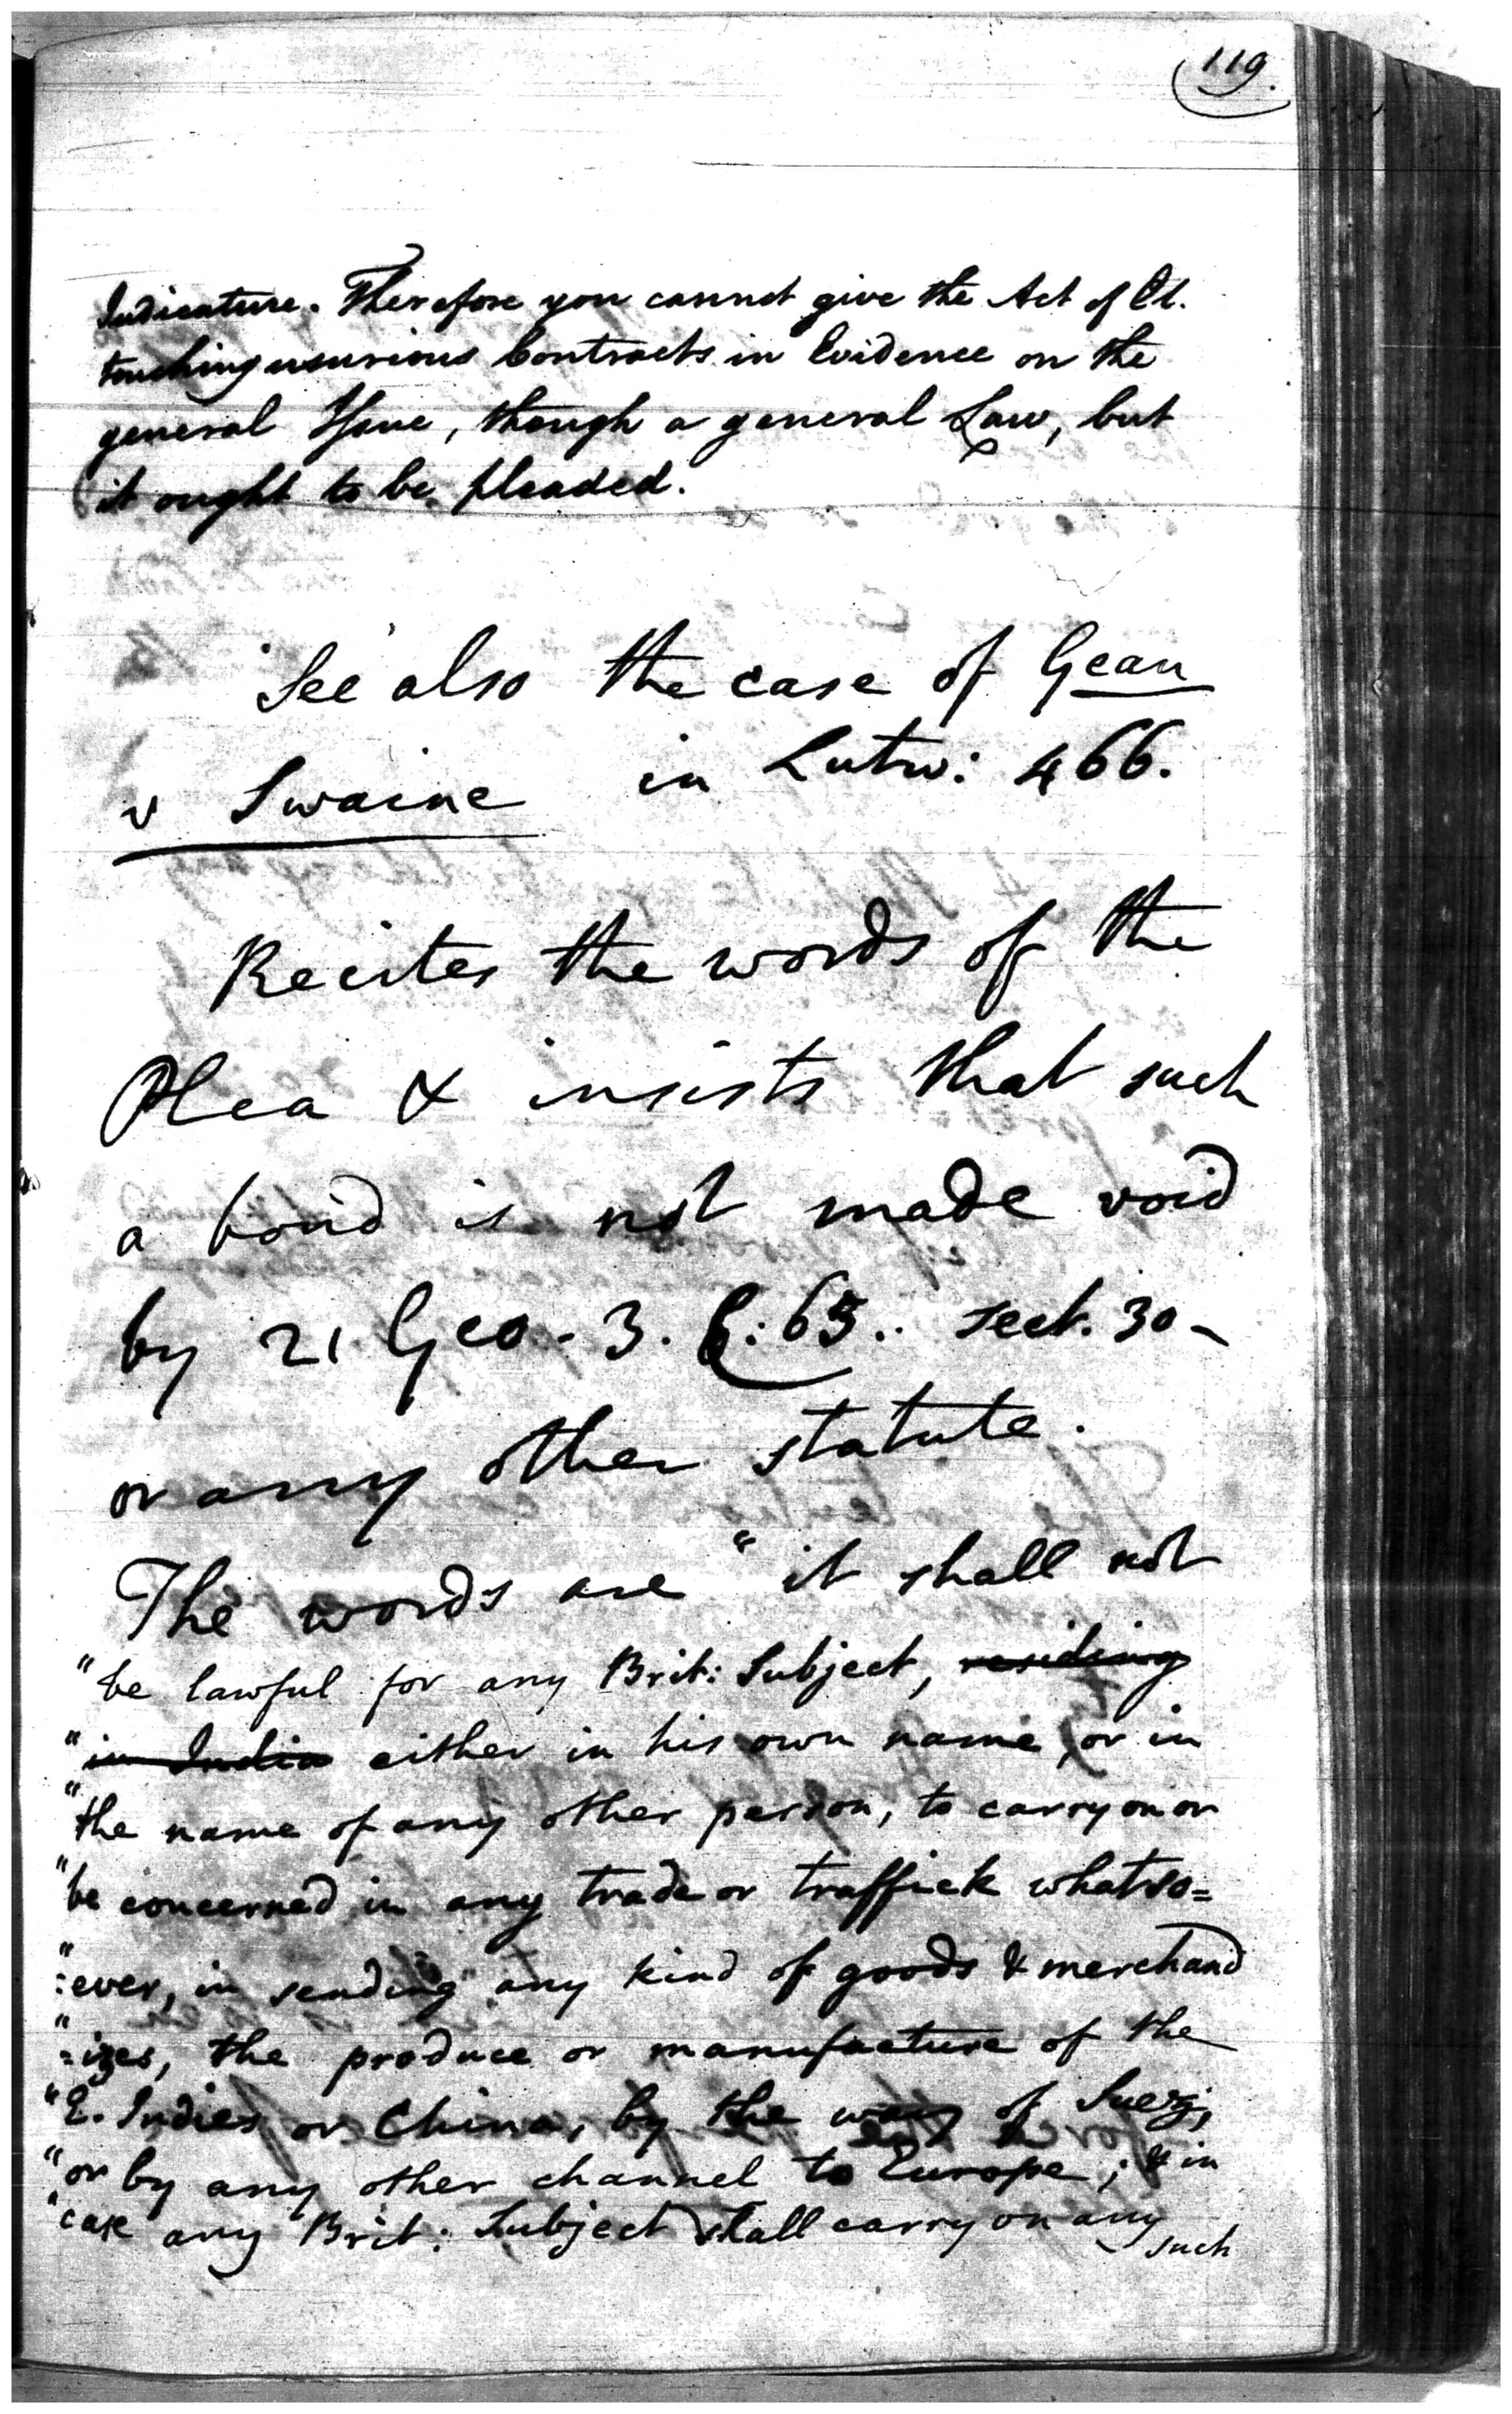 119.
Judicature. Therefore you cannot give the Act of El.
touching usurious Contracts in Evidence on the
general Issue, though a general Law, but
it ought to be pleaded.
See also the case of Gean
v Swaine in Lutw: 466.
Recites the words of the
Plea & insists that such
a bond is not made void
by 21. Geo. 3. C: 65. sect. 30 -
or any other statute.
The words are "it shall not
"be lawful for any Brit: Subject, residing
"in India either in his own name, or in
"the name of any other person, to carry on or
"be concerned in any trade or traffick whatso=
":ever, in sending any kind of goods & merchand
"=izes, the produce or manufacture of the
"E. Indies or China, by the way of Suez,
"or by any other channel to Europe; & in
"case any Brit: Subject shall carry on any
such